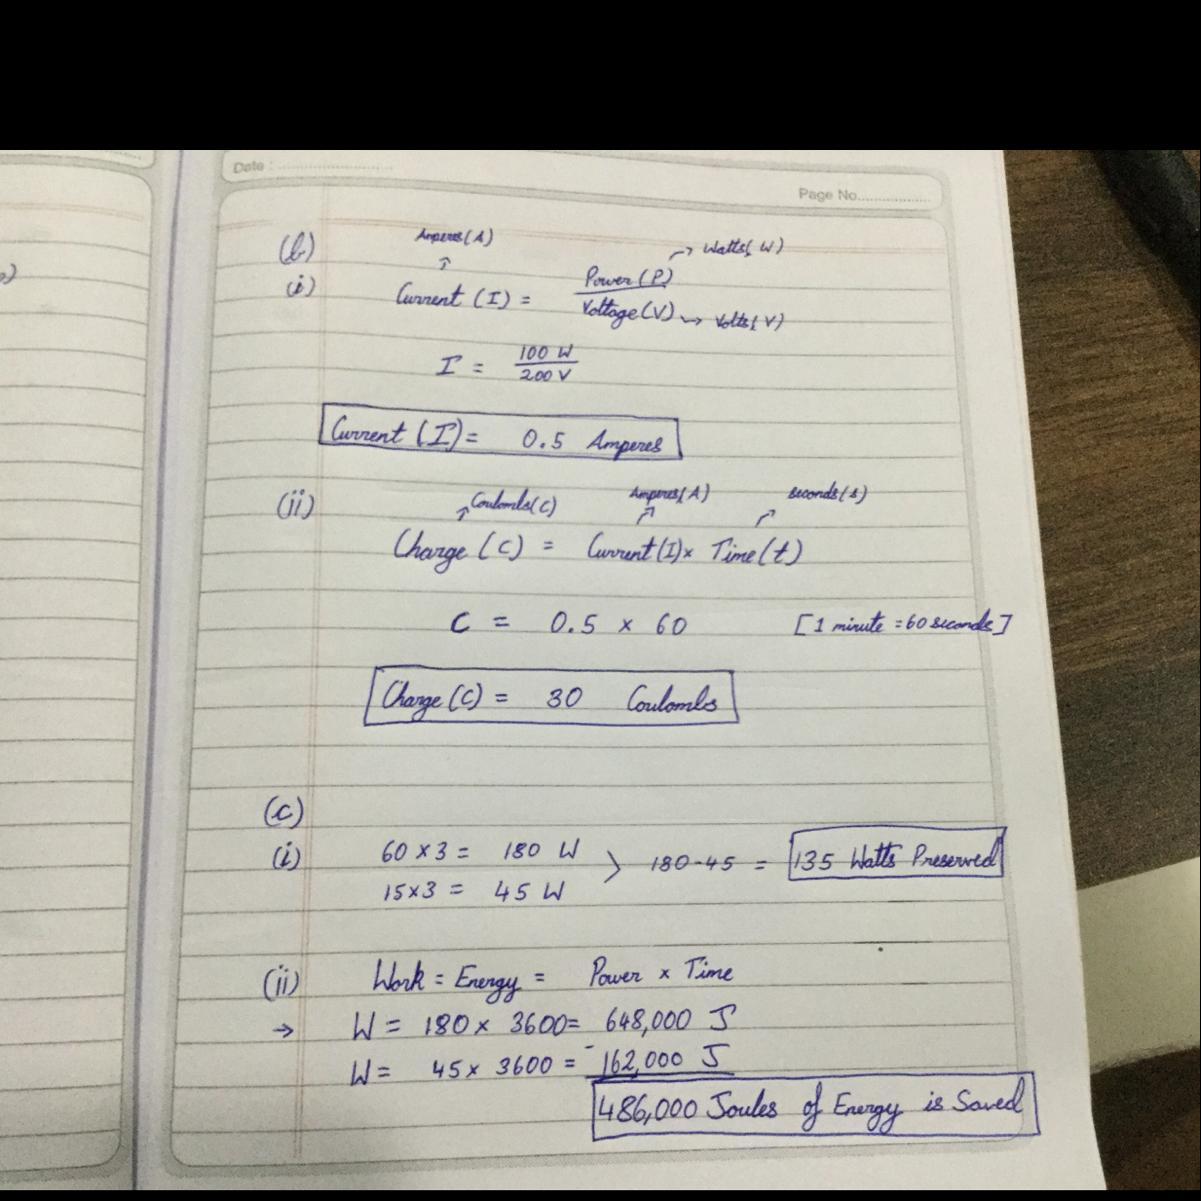 Date :
Page No.
(b)
Amperes(A)
→ Watts(W)
(i) Current (I) = Power (P) / Voltage (V) → Volts(V)
I = 100 W / 200 V
Current (I) = 0.5 Amperes
(ii) Coulombs(C) Amperes(A) seconds(s)
Charge (C) = Current(I) × Time(t)
C = 0.5 × 60 [1 minute = 60 seconds]
Charge (C) = 30 Coulombs
(c)
(i) 60 × 3 = 180 W
15 × 3 = 45 W
> 180-45 = 135 Watts Preserved
(ii) Work = Energy = Power × Time
→ W = 180 × 3600 = 648,000 J
W = 45 × 3600 = - 162,000 J
486,000 Joules of Energy is Saved